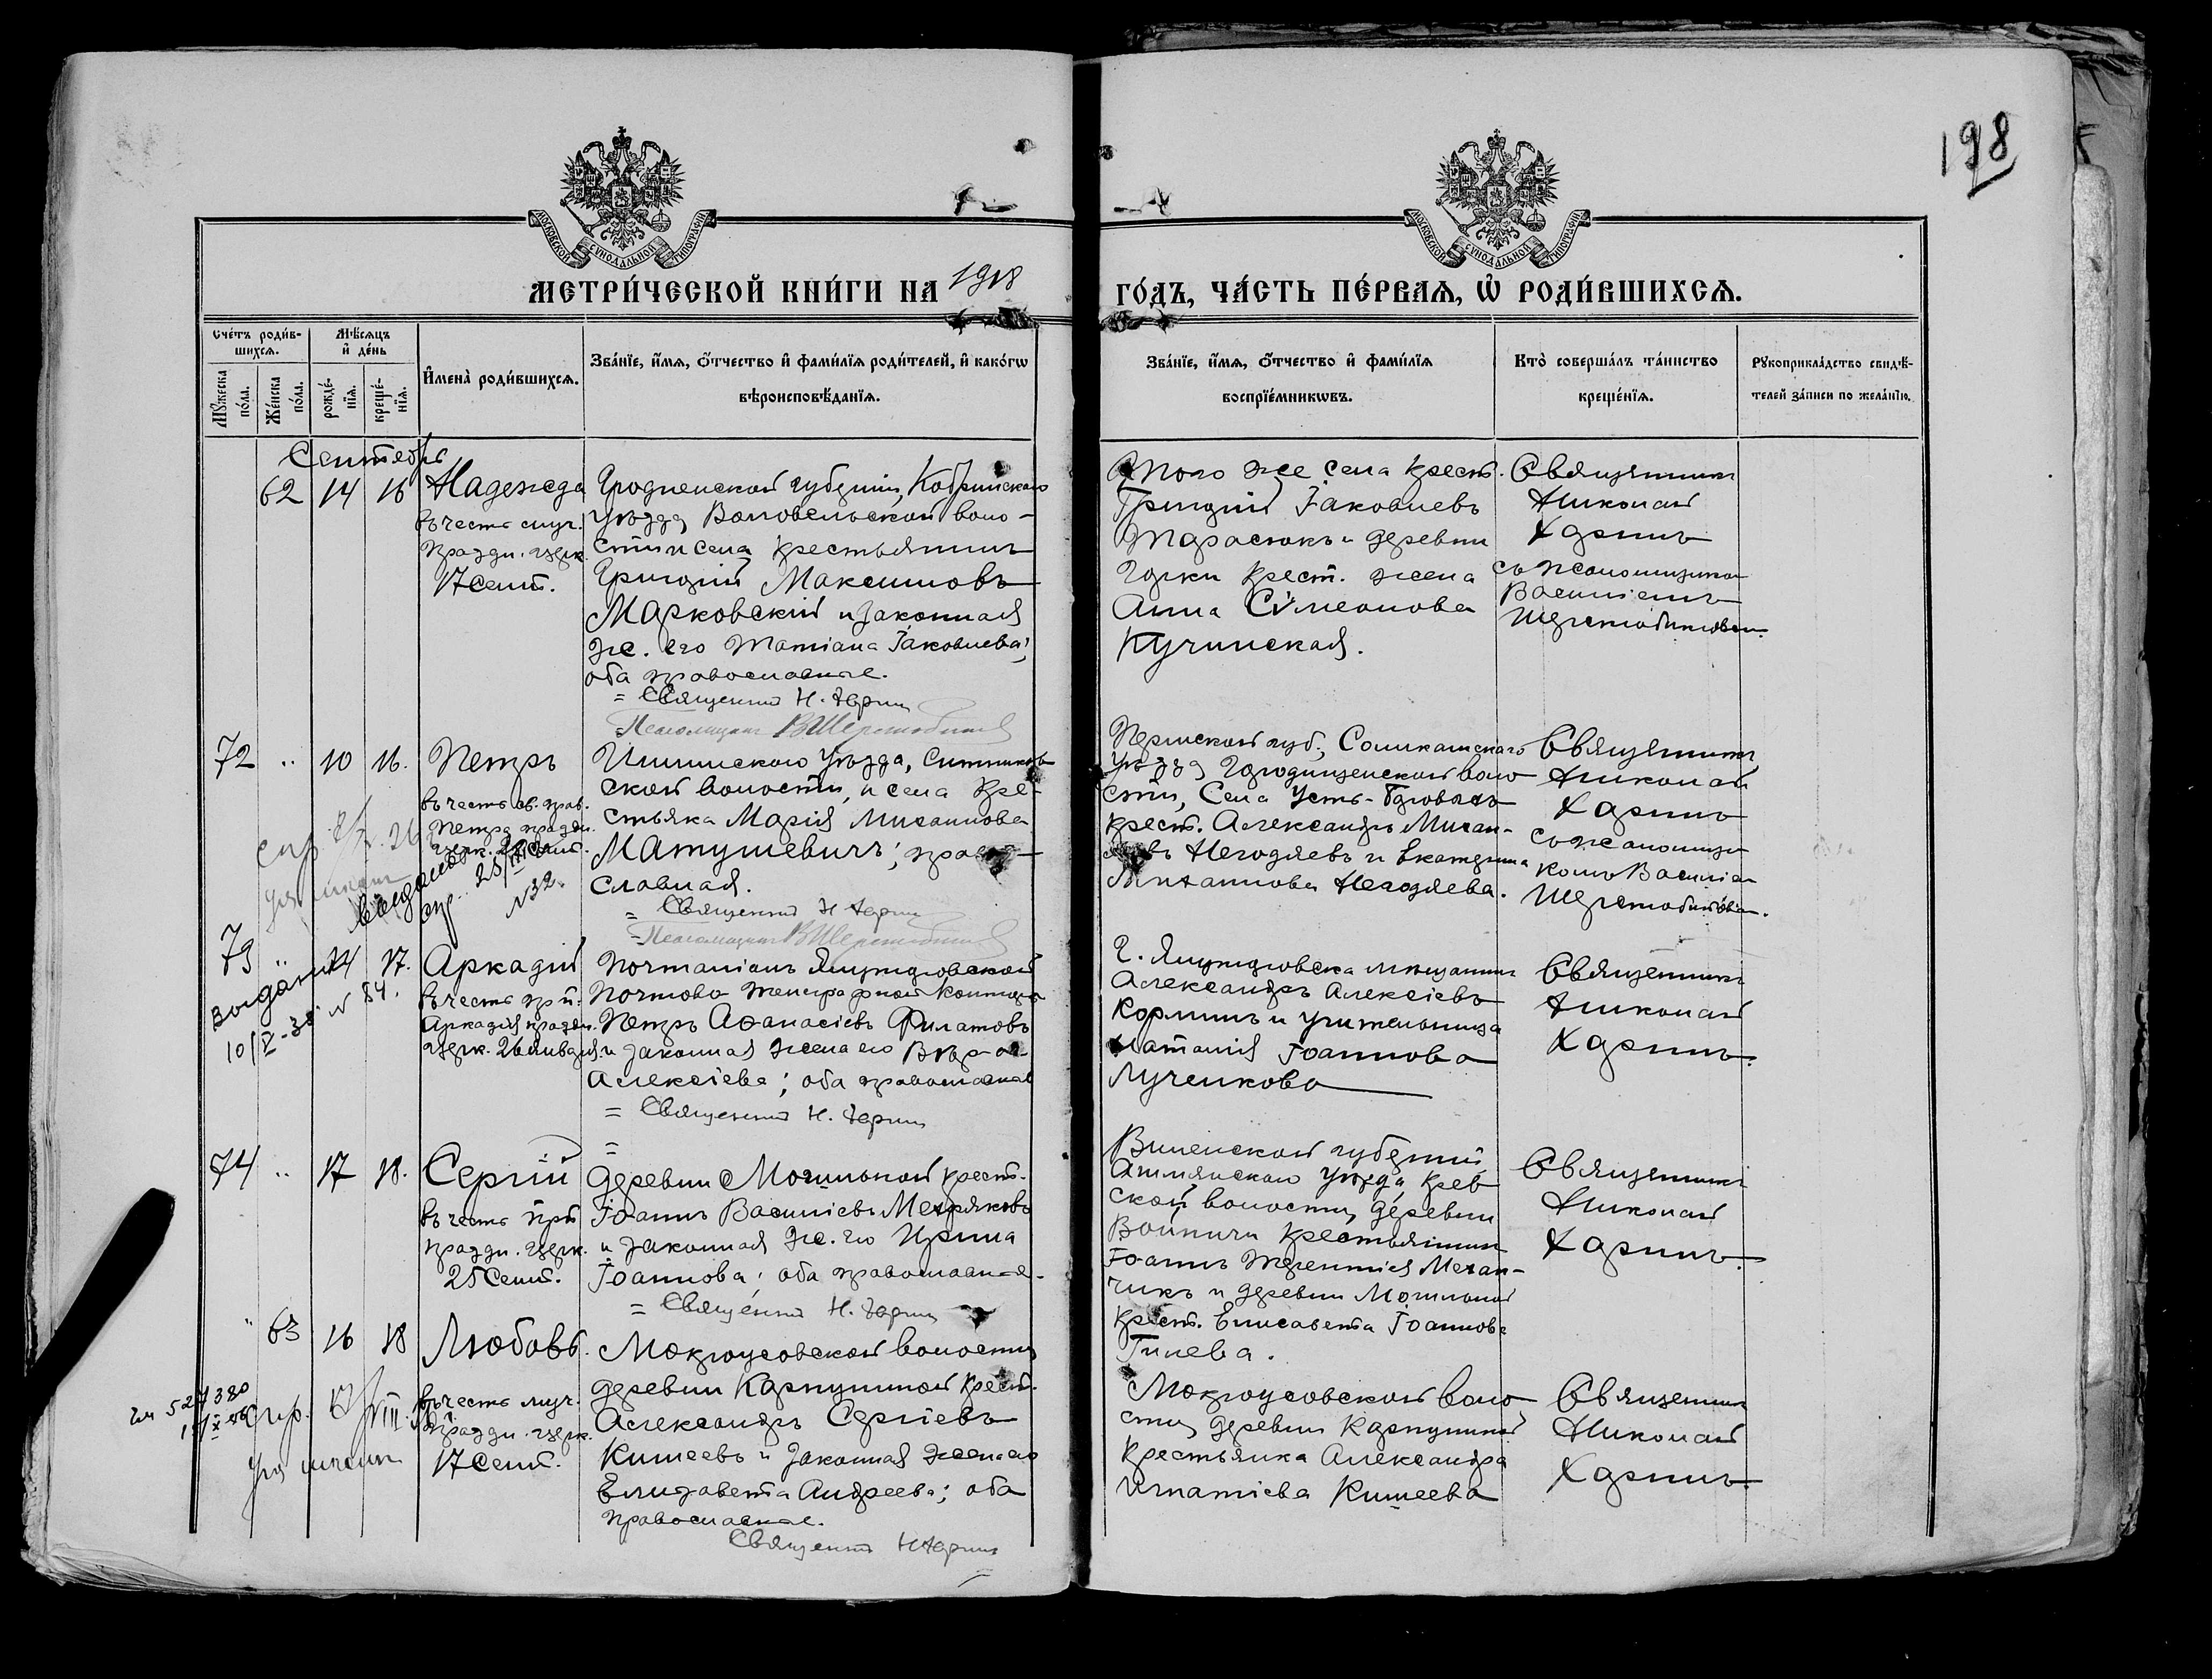 198
МОСКОВСКОЙ СѴНОДАЛЬНОЙ ТИПОГРАФІИ
МОСКОВСКОЙ СѴНОДАЛЬНОЙ ТИПОГРАФІИ
МЕТРИ́ЧЕСКОЙ КНИ́ГИ НА 1918
ГО́ДЪ, ЧА́СТЬ ПЕ́РВАѦ, Ѡ РОДИ́ВШИХСѦ.
Сче́тъ роди́в-
шихсѧ.
Мꙋ́жеска
по́ла.
Же́нска
по́ла.
Мѣ́сѧцъ
и҆ де́нь
рожде́-
нїѧ.
креще́-
нїѧ.
И҆мена̀ роди́вшихсѧ.
Зва́нїе, и҆́мѧ, ѻ҆́тчество и҆ фами́лїѧ роди́телей, и҆ како́гѡ
вѣроисповѣ́данїѧ.
Зва́нїе, и҆́мѧ, ѻ҆́тчество и҆ фами́лїѧ
воспрїе́мникѡвъ.
Кто̀ соверша́лъ та́инство
креще́нїѧ.
Рꙋкоприкла́дство свидѣ́-
телей за́писи по жела́нїю.
Сентябрь
62 14 16
Надежда
въ честь муч.
праздн. церк.
17 Сент.
Гродненской губерніи, Кобринскаго
уѣзда, воло-
сти и села крестьянинъ
Григорій Максимовъ
Марковскій и законная
ж. его Татіана Іаковлева;
оба православные.
= Священникъ Н. Харинъ
Псаломщикъ В Шерстобитовъ
того же села крест.
Григорій Іаковлевъ
Тарасюкъ и деревни
Горки крест. жена
Анна Сѵмеонова
Кучинская.
Священникъ
Николай
Харинъ
съ псаломщикомъ
Василіемъ
Шерстобитовым.
72 " 10 16.
Петръ
въ честь св. прав.
Петра праздн.
церк. Сент.
Ишимскаго Уѣзда, Ситников-
ской волости, и села кре-
стьянка Марія Михаилова
Матушевичъ; право-
славная.
= Священникъ Н Харинъ
= Псаломщикъ В Шерстобитовъ
Пермской губ., Соликамскаго
уѣзда Городищенской воло-
сти, Села Усть-
крест. Александръ Михаи-
ловъ Негодяевъ и Екатерина
Михаилова Негодяева.
Священникъ
Николай
Харинъ
съ псаломщи-
комъ Василіем
Шерстобитовым.
N 32.
73 " 14 17.
Выдано
10/IV-38 N 84.
Аркадій
въ честь прп.
Аркадія праздн.
церк. 26 января.
Почталіонъ Ялуторовской
Почтово Телеграфной Конторы
Петръ Аѳанасіевъ Филатовъ
и законная жена его Вѣра
Алексіева; оба православные
= Священникъ Н. Харинъ
Г. Ялуторовска мѣщанинъ
Александръ Алексіевъ
Корминъ и учительница
Наталія Іоаннова
Лученкова
Священникъ
Николай
Харинъ.
74 " 17 18.
Сергій
въ честь прп
праздн. церк.
25 Сент.
=
деревни Могильной крест.
Іоаннъ Василіевъ
и законная ж. его Ирина
Іоаннова; оба православные.
= Священникъ Н. Харинъ
Виленской губерніи
Ошмянскаго уѣзда, Крев-
ской волости, деревни
Войничи крестьянинъ
Іоаннъ
чикъ и деревни Могильной
Крест. Елисавета Іоаннова
Гилева.
Священникъ
Николай
Харинъ.
" 63 16 18
Любовь
въ честь муч.
праздн. церк.
17 Сент.
Мокроусовской волости
деревни Карпуниной крест.
Александръ Сергіевъ
Кишеевъ и законная жена его
Елизавета Андреева; оба
православные.
Священникъ Н Харинъ
Мокроусовской воло-
сти, деревни Карпуниной
крестьянка Александра
Игнатіева Кишеева
Священникъ
Николай
Харинъ.